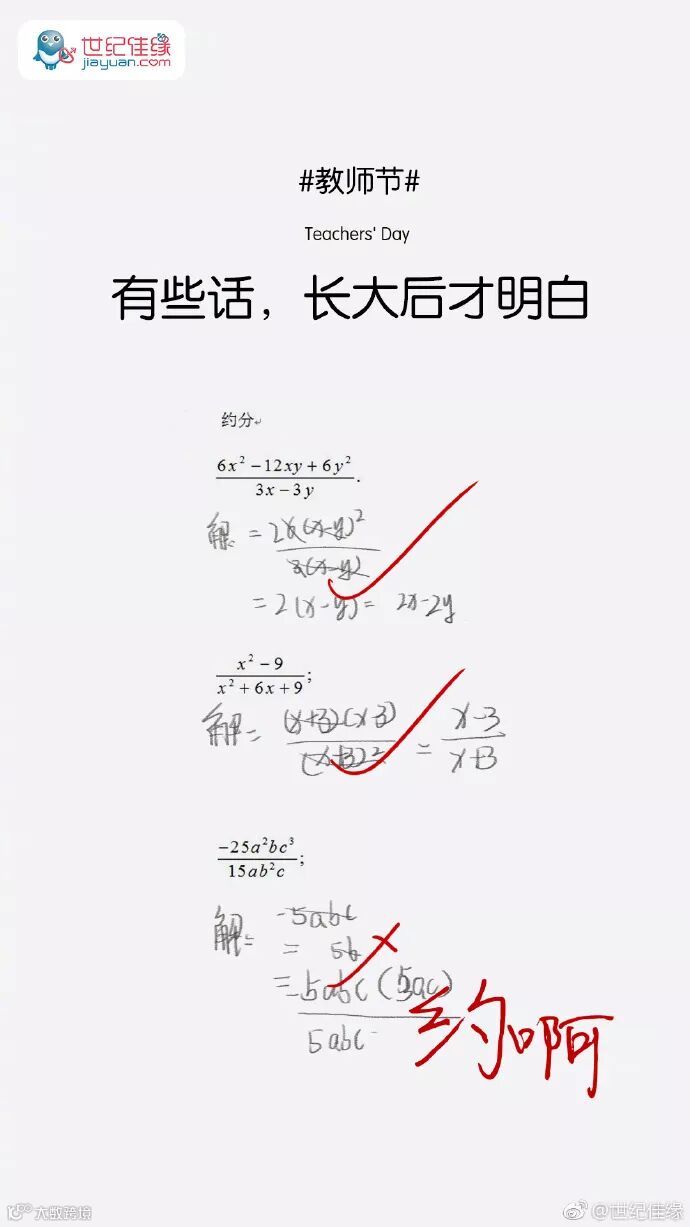 世纪佳缘
jiayuan.com
#教师节#
Teachers' Day
有些话，长大后才明白
约分
6x² −12xy + 6y²
3x − 3y .
解 = 2x(x-y)²
3(x-y)
= 2(x-y) = 2x-2y
x² − 9
x² + 6x + 9 ;
解 = (x+3)(x-3)
(x+3)²
= x-3
x+3
−25a²bc³
15ab²c ;
解 = -5abc
= 5b
= -5abc (5ac)
5abc
约啊
大数跨境
@世纪佳缘